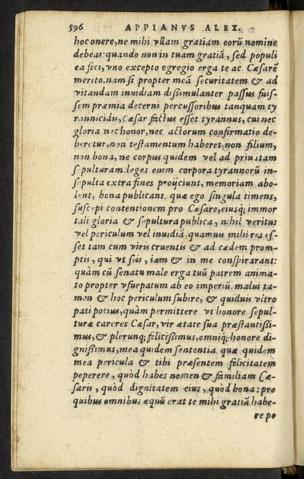 596 APPIANVS ALEX.
hoc onere, ne mihi vllam gratiam eorũ nomine
debeas: quando non in tuam gratiã, sed populi
ea feci, vno excepto egregio erga te ac Cæsarē
merito. nam si propter meã securitatem & ad
vitandam inuidiam dissimulanter passus fuis-
sem præmia decerni percussoribus tanquam ty
rannicidis, Cæsar factus esset tyrannus, cui nec
gloria nec honor, nec actorum confirmatio de-
beretur. non testamentum haberet, non filium,
non bona, ne corpus quidem vel ad priuatam
sepulturam. leges enim corpora tyrannorũ in-
sepulta extra fines proijciunt, memoriam abo-
lent, bona publicant. quæ ego singula timens,
suscepi contentionem pro Cæsare, eiusq; immor
tali gloria & sepultura publica, nihil veritus
vel periculum vel inuidiã. quamuis mihi res es-
set tam cum viris cruentis & ad cædem prom-
ptis, qui vt scis, iam & in me conspirarant:
quàm cũ senatu male erga tuũ patrem anima-
to propter vsurpatum ab eo imperiũ. malui ta-
men & hoc periculum subire, & quiduis vltro
pati potius, quàm permittere vt honore sepul-
turæ careret Cæsar, vir ætate sua præstantissi-
mus, & plerunq; felicissimus, omniq; honore di-
gnissimus, mea quidem sententia. quæ quidem
mea pericula & tibi præsentem felicitatem
peperere, quòd habes nomen & familiam Cæ-
saris, quòd dignitatem eius, quòd bona: pro
quibus omnibus æquũ erat te mihi gratiã habe-
re po